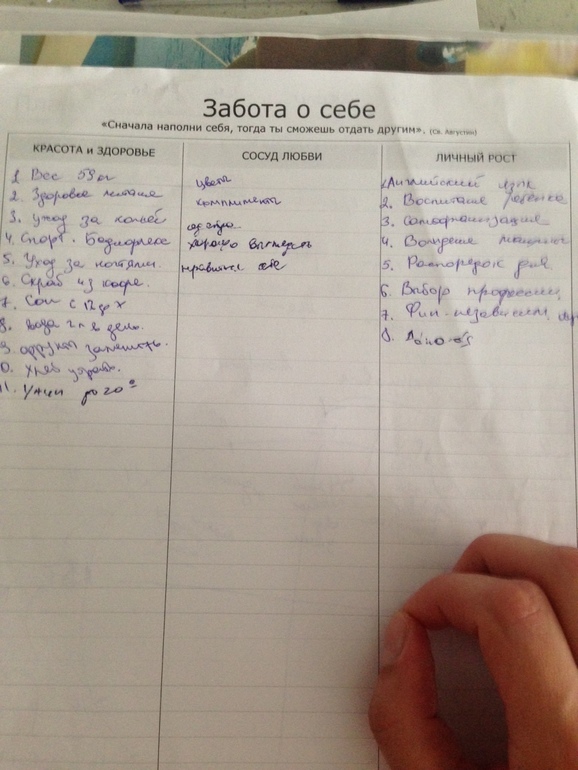 Забота о себе
«Сначала наполни себя, тогда ты сможешь отдать другим». (Св. Августин)
КРАСОТА и ЗДОРОВЬЕ
1. Вес 59 кг
2. Здоровое питание
3. уход за кожей
4. Спорт. Бодифлекс
5. Уход за ногтями.
6. Скраб из кофе.
7. Сон с 12 до
8. вода 2 л в день.
9. заменить.
10. Хлеб убрать.
11. Ужин до 20°
СОСУД ЛЮБВИ
цветы
комплименты
хорошо выглядеть
нравиться себе
ЛИЧНЫЙ РОСТ
1. Английский язык
2. Воспитание ребенка
3. Самоорганизация
4. Вождение машины
5. Распорядок дня.
6. Выбор профессии,
7. Фин. независим.
8.